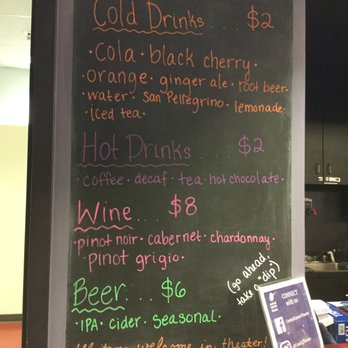 Cold Drinks ... $2
· Cola · black cherry ·
orange · ginger ale · root beer ·
water · San Pellegrino · lemonade ·
iced tea ·
Hot Drinks ... $2
· coffee · decaf · tea · hot chocolate ·
Wine ... $8
· pinot noir · cabernet · chardonnay ·
pinot grigio ·
Beer ... $6
· IPA · cider · seasonal ·
(go ahead,
take a dip!)
welcome in theater!
CONNECT
with us